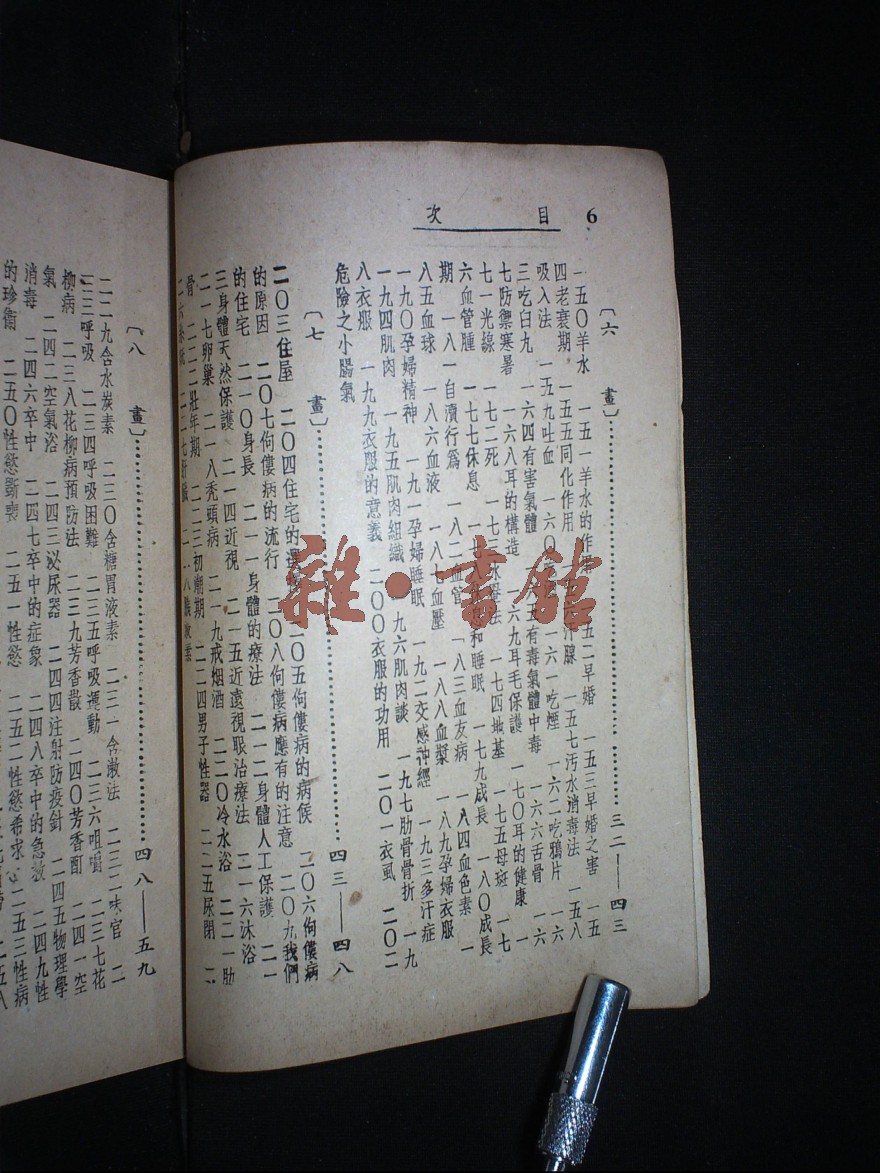 6
目次
〔六 畫〕……三二——四三
一五〇羊水 一五一羊水的作 五二早婚 一五三早婚之害 一五
四老衰期 一五五同化作用 汗腺 一五七汚水消毒法 一五八
吸入法 一五九吐血 一六〇 一六一吃煙 一六二吃鴉片 一六
三吃白丸 一六四有害氣體 五有毒氣體中毒 一六六舌骨 一六
一六八耳的構造 一六九耳毛保護 一七〇耳的健康 一
七防禦寒暑 一七
七一光線 一七二死 一七三水療法 一七四地基 一七五母斑 一七
六血管腫 一七七休息 一七 和睡眠 一七九成長 一八〇成長
期 一八一自瀆行爲 一八二血管 一八三血友病 一八四血色素 一
八五血球 一八六血液 一八七血壓 一八八血漿 一八九孕婦衣服
一九〇孕婦精神 一九一孕婦睡眠 一九二交感神經 一九三多汗症
一九四肌肉 一九五肌肉組織 一九六肌肉談 一九七肋骨骨折 一九
八衣服 一九九衣服的意義 二〇〇衣服的功用 二〇一衣虱 二〇二
危險之小腸氣
〔七 畫〕……四三——四八
二〇三住屋 二〇四住宅的選 二〇五佝僂病的病候 二〇六佝僂病
的原因 二〇七佝僂病的流行 二〇八佝僂病應有的注意 二〇九我們
的住宅 二一〇身長 二一一身體的療法 二一二身體人工保護 二一
三身體天然保護 二一四近視 二一五近遠視眼治療法 二一六沐浴
二一七卵巢 二一八禿頭病 二一九戒烟酒 二二〇冷水浴 二二一肋
骨 二二二壯年期 二二三初潮期 二二四男子性器 二二五尿閉 二
二七肝臟
〔八 畫〕……四八——五九
二二九含水炭素 二三〇含糖胃液素 二三一含漱法 二三二味官 二
三三呼吸 二三四呼吸困難 二三五呼吸運動 二三六咀嚼 二三七花
柳病 二三八花柳病預防法 二三九芳香散 二四〇芳香酊 二四一空
氣 二四二空氣浴 二四三泌尿器 二四四注射防疫針 二四五物理學
消毒 二四六卒中 二四七卒中的症象 二四八卒中的急救 二四九性
的珍衛 二五〇性慾斷喪 二五一性慾 二五二性慾希求 二五三性病